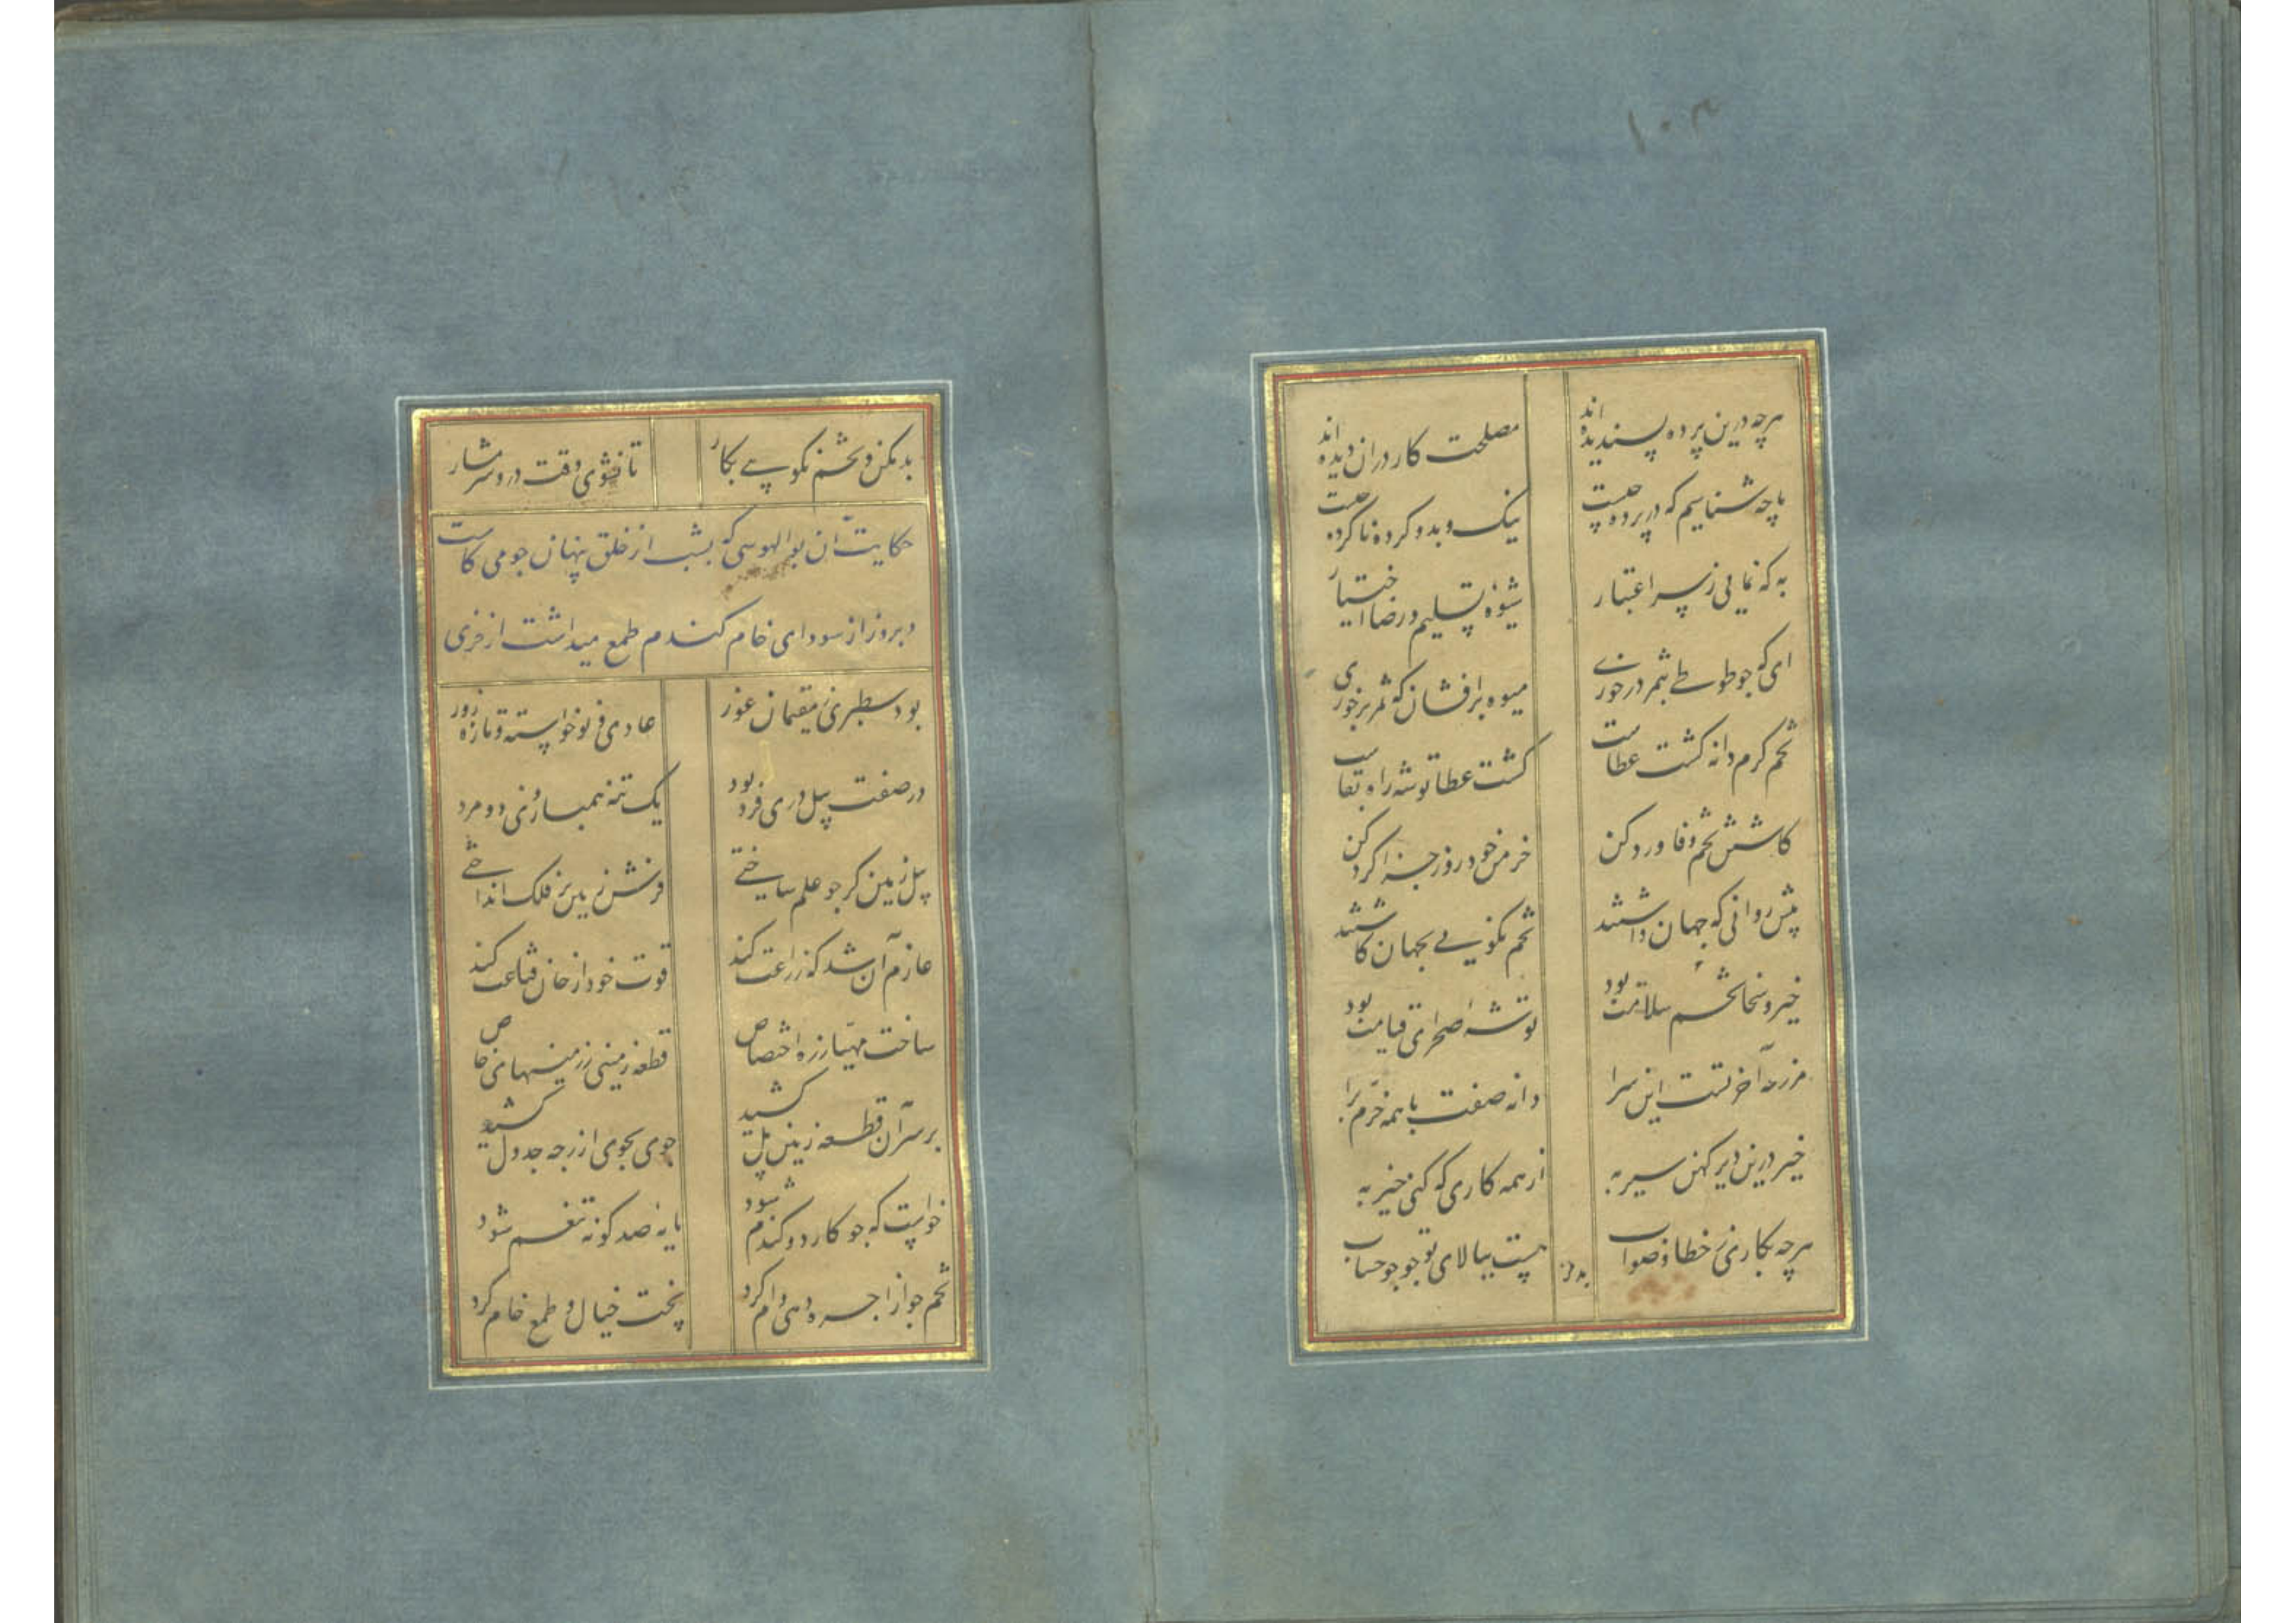 ۱۰۳
هرچه درین پرده پسندیده‌اند مصلحت کار دران دیده‌اند
ما چه شناسیم که در پرده چیست نیک و بد و کرده و ناکرده چیست
به که نمایی ز سر اعتبار شیوهٔ تسلیم و رضا اختیار
ای که چو طوطی بثمر در خوری میوه برافشان که ثمر برخوری
تخم کرم دانه کشت عطاست کشت عطا توشه راه بقاست
کاشتن تخم وفا ورد کن خرمن خود روز جزا گرد کن
پیش روانی که جهان داشتند تخم نکویی بجهان کاشتند
خیر و سخا تخم سلامت بود توشهٔ صحرای قیامت بود
مزرعهٔ آخرتست این سرا دانه صفت با همه خرم برا
خیر درین دیر کهن سیر به از همه کاری که کنی خیر به
هرچه بکاری ز خطا و صواب هست ببالای تو جو جو حساب
بد مکن
بد مکن و تخم نکویی بکار تا نشوی وقت درو شرمسار
حکایت آن بوالهوسی که بشب از خلق پنهان جو می کاشت
و بروز از سودای خام گندم طمع میداشت از خری
بود سطبری ز مقیمان غور عادی نوخواسته و تازه زور
در صفت بیل وری فرد بود یک تنه همبازوی دو مرد
بیل زمین کر چو علم ساختی فرش زمین بر فلک انداختی
عازم آن شد که زراعت کند قوت خود از خان قناعت کند
ساخت مهیا ز ره اختصاص قطعه زمینی ز زمینهای خاص
بر سر آن قطعه زمین بیل کشید جوی بجوی از زجه جدول کشید
خواست که جو کارد و گندم شود مایهٔ صد گونه تنعم شود
تخم جو از اجره دهی وام کرد پخت خیال و طمع خام کرد